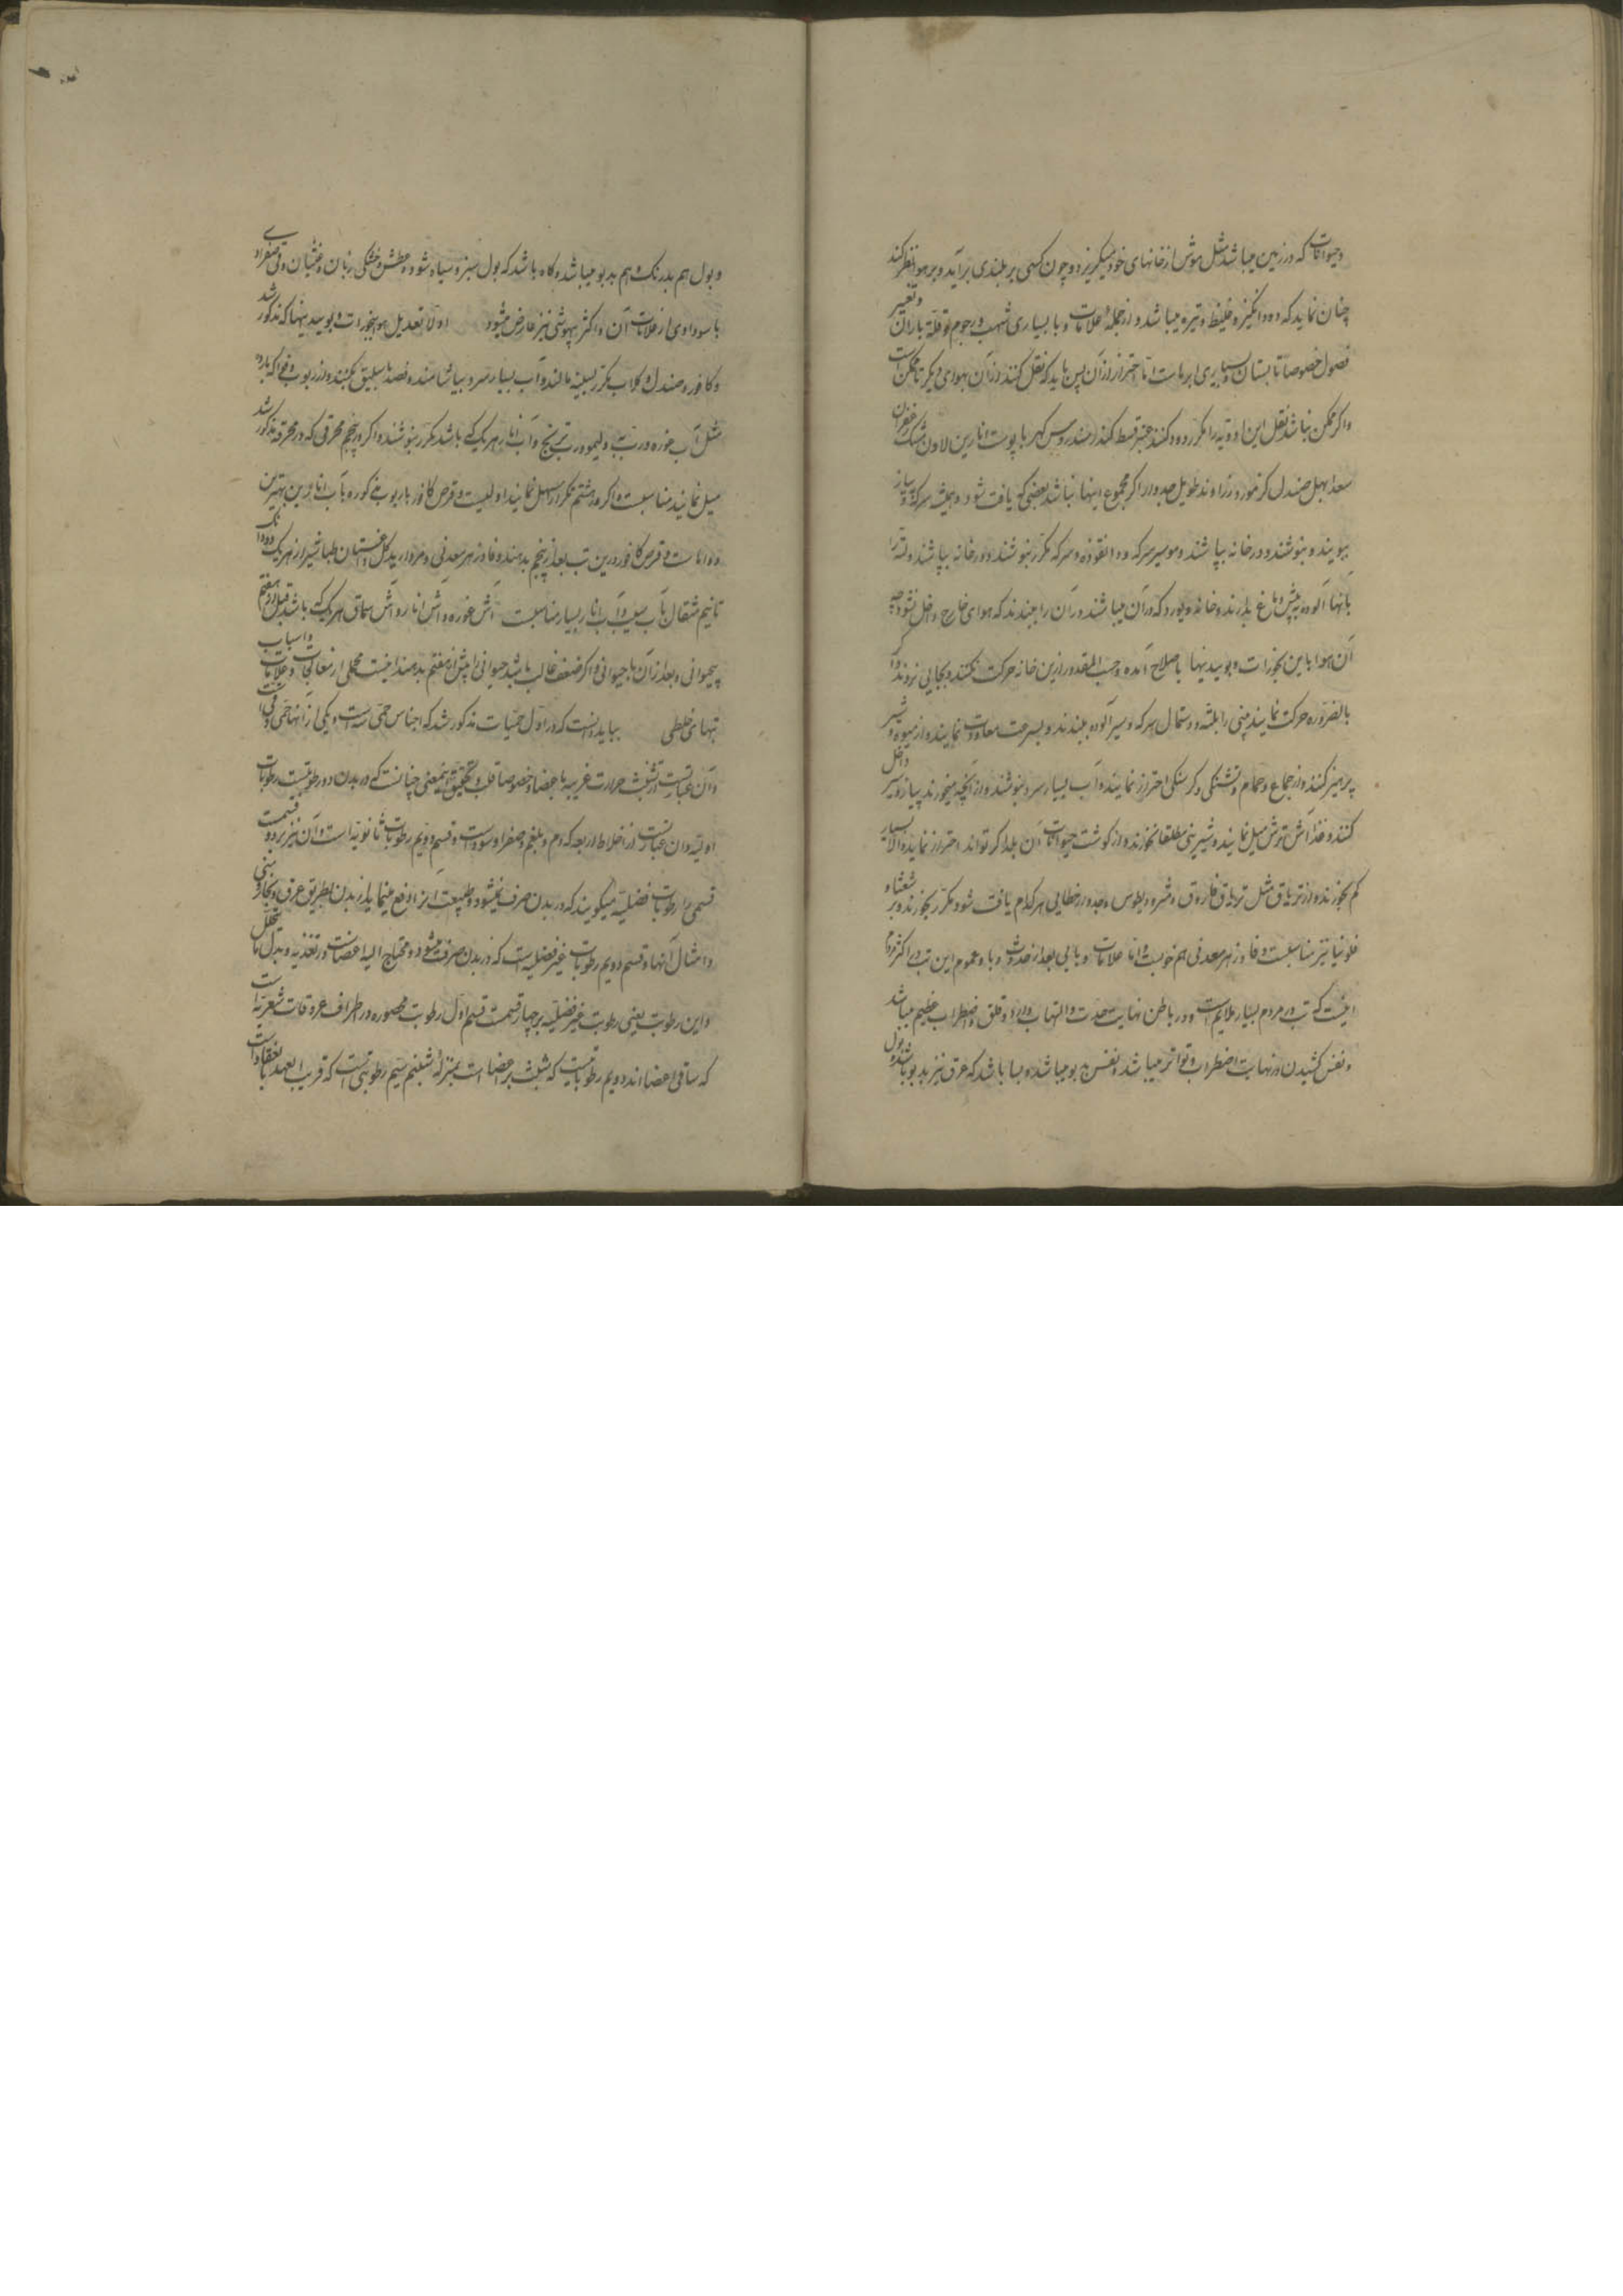 وحیوانات که در زمین میباشد مثل موش از خانهای خود میگریزد و چون کسی بر بلندی برآید و بر هوا نظر کند
چنان نماید که دودانگیز و غلیظ و تیره میباشد و از جمله علامات وبا بسیاری شهب و رجوم و قلة باران و تغییر
فصول خصوصا تابستان و بسیاری ابرهاست اما احتراز از آن پس باید که نقل کنند از آن بهوای دیگر تا ممکن است
واگر ممکن نباشد نقل این ادویه را مکرر دود کنند عنبر قسط کندر سندروس کهربا پوست انارین لادن مشک زعفران
سعد ابهل صندل زراوند طویل جدوار اگر مجموع اینها نباشد بعضی که یافت شود و همیشه سرکه و پیاز
ببویند و بنوشند و در خانه بپاشند و سیر سرکه و انقوزه و سرکه مکرر بنوشند و در خانه بپاشند و لته را
بآنها آلوده پیش دماغ بدارند و خانه که در آن میباشند در آن را ببندند که هوای خارج داخل نشود چه
آن هوا باین بخورات و بوییدنیها باصلاح آمده و حسب المقدور ازین خانه حرکت نکنند و بجایی نروند و اگر
بالضروره حرکت نمایند بینی را بلته و دستمال بسرکه و سیر آلوده ببندند و بسرعت معاودت نمایند و از میوه و شیر
پرهیز کنند و از جماع و حمام و تشنگی و گرسنگی احتراز نمایند و آب بسیار سرد بنوشند و در آنچه میخورند پیاز و سیر داخل
کنند و غذا آش ترش میل نمایند و شیرینی مطلقا نخورند و از گوشت حیوانات آن بلد اگر تواند احتراز نماید و الا بسیار
کم بخورند و از تریاق مثل تریاق فاروق و مثرودیطوس و جدوار خطایی هر کدام یافت شود مکرر بخورند و بر شعثا و
فلونیا نیز مناسبست و فادزهر معدنی هم خوبست اما علامات وبایی بعد از حدوث وبا و عموم این تب در اکثر مردم
اینست که تب در مردم بسیار ملایم است و در باطن نهایت حدت و التهاب دارد و قلق و اضطراب عظیم میباشد
و نفس کشیدن در نهایت اضطراب و تواتر میباشد و نفس بدبو میباشد و بسا باشد که عرق نیز بدبو باشد و بول
و بول هم بدرنگ و هم بدبو میباشد و گاه باشد که بول سبز و سیاه شود و عطش و خشکی زبان و غشیان و قی صفراوی
یا سوداوی از علامات آن و اکثر بیهوشی نیز عارض میشود اولا تعدیل هوا ببخورات و بوییدنیها که مذکور شد
و کافور و صندل و گلاب مکرر بسینه مالند و آب بسیار سرد بیاشامند و فصد باسلیق بکنند و از ربوب و فواکه بارده
مثل آب غوره و رب به و لیمو و رب ترنج و آب انار هر یک که باشد مکرر بنوشند و اگر در پنجم محرقی که در محرقه مذکور شد
میل نمایند مناسبست و اگر در هشتم تکرار مسهل نمایند اولیست و قرص کافور با ربوب مذکوره یا آب انارین بهترین
دواهاست و قرص کافور درین تب بعد از پنجم بدهند و فادزهر معدنی و مروارید و گل داغستان و طباشیر از هر یک دو دانگ
تا نیم مثقال با آب سیب و آب انار بسیار مناسبست آش غوره و آش انار و آش سماق هر یک که باشد قبل از هفتم
بیحیوانی و بعد از آن با حیوانی و اگر ضعف غالب باشد حیوانی را پیش از هفتم بدهند اینست مجملی از معالجات و علامات و اسباب
تبهای خلطی بباید دانست که در اول حمیات مذکور شد که اجناس حمی سه است و یکی از آنها حمی دق است
و آن عبارتست از تشبث حرارت غریبه باعضا و خصوصا قلب و تحقیق اینمعنی چنانست که در بدن دو رطوبتست رطوبات
اولیه و آن عبارتست از اخلاط اربعه که دم و بلغم و صفرا و سوداست و قسم دویم رطوبات ثانویه است و آن نیز بر دو قسمست
قسمی را رطوبات فضلیه میگویند که در بدن صرف نمیشود و طبیعت آنرا دفع مینماید از بدن بطریق عرق و بخار و بینی
و امثال آنها و قسم دویم رطوبات غیر فضلیه است که در بدن صرف میشود و محتاج الیه اعضاست در تغذیه و بدل ما یتحلل
و این رطوبت یعنی رطوبت غیر فضلیه بر چهار قسمت قسم اول رطوبت محصوره در اطراف عروقات شعریه است
که ساقی اعضااند دویم رطوباتیست که منبث بر اعضاست بمنزله شبنم سیم رطوبتی است که قریب العهد بانعقاد است